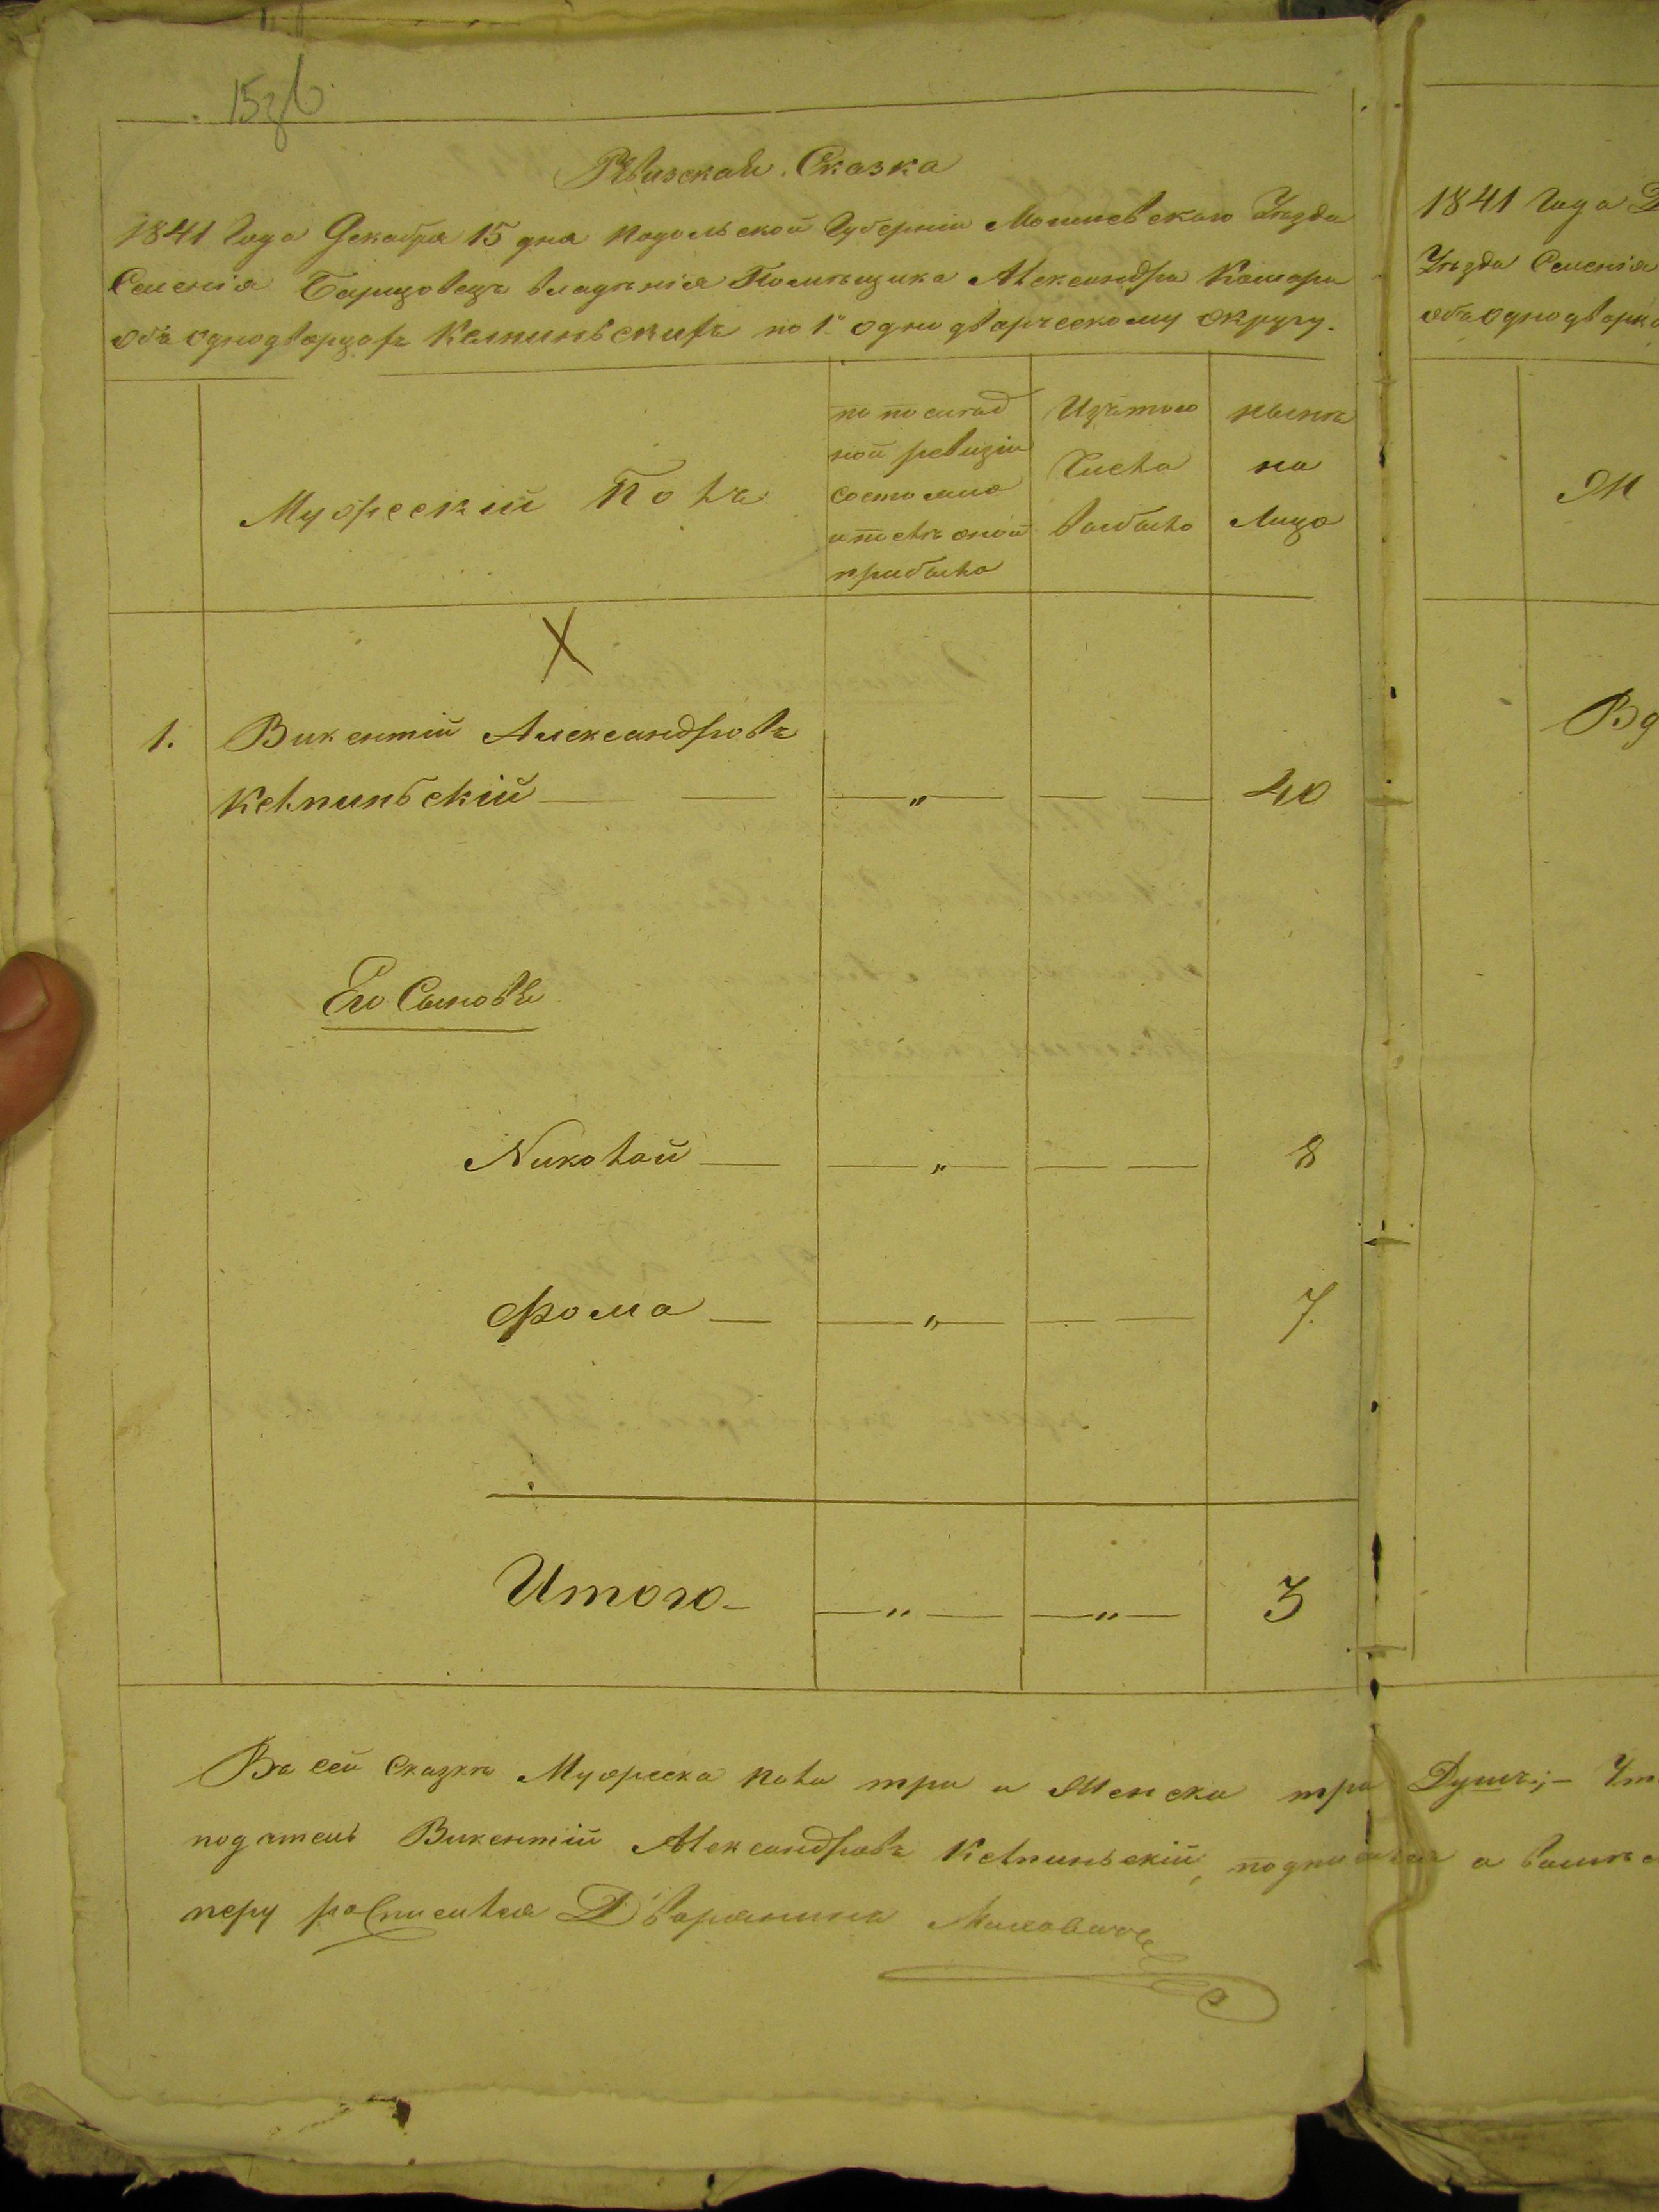 Ревизская Сказка
1841 Года Декабря 15 дня Подольской Губерніи Могилевскаго Уѣзда
Селенія владѣнія Помѣщика Александра Комара
объ однодворцахъ по 1му однодворческому округу.
Мужескій Полъ
по послѣд
ной ревизіи
состояло
и послѣ оной
прибыло
Изътого
Числа
выбыло
нынѣ
на
Лицо
1. Викентій Александровъ
Келпиньскій — „ — 40
Его Сыновья
Николай — „ — 8
Фома — „ — 7.
Итого — „ — „ — 3
Въ сей Сказкѣ Мужеска пола три и Женска три Душъ; —
податель Викентій Александровъ Келпиньскій,
перу росписился Дворянинъ
1841 Года Д
Уѣзда Селенія
объ однодворц
Ж
Вд